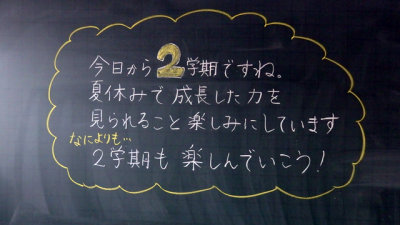 今日から2学期ですね。
夏休みで成長した力を
見られること楽しみにしています
なによりも…
2学期も楽しんでいこう!